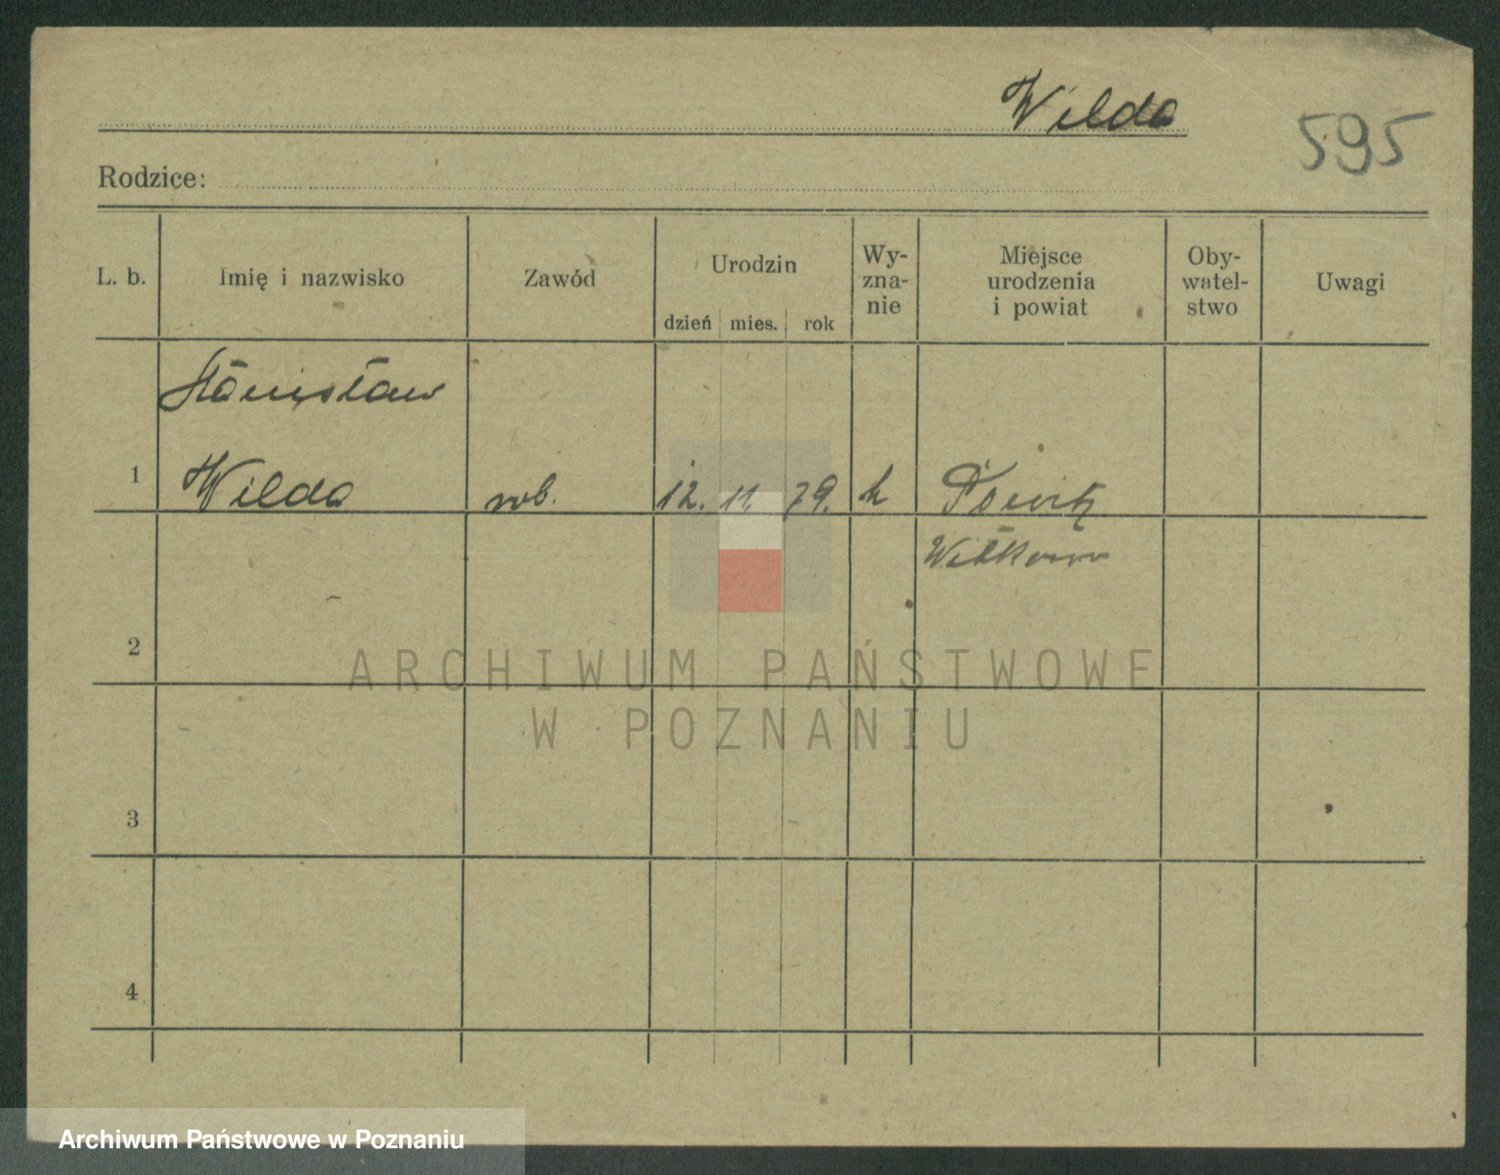 Wilda
595
Rodzice:
L. b. Imię i nazwisko Zawód Urodzin dzień mies. rok Wy-zna-nie Miejsce urodzenia i powiat Oby-watel-stwo Uwagi
Stanisław
1 Wilda rob. 12. 11. 79. k
Witkowo
2
3
4
ARCHIWUM PAŃSTWOWE
W POZNANIU
Archiwum Państwowe w Poznaniu